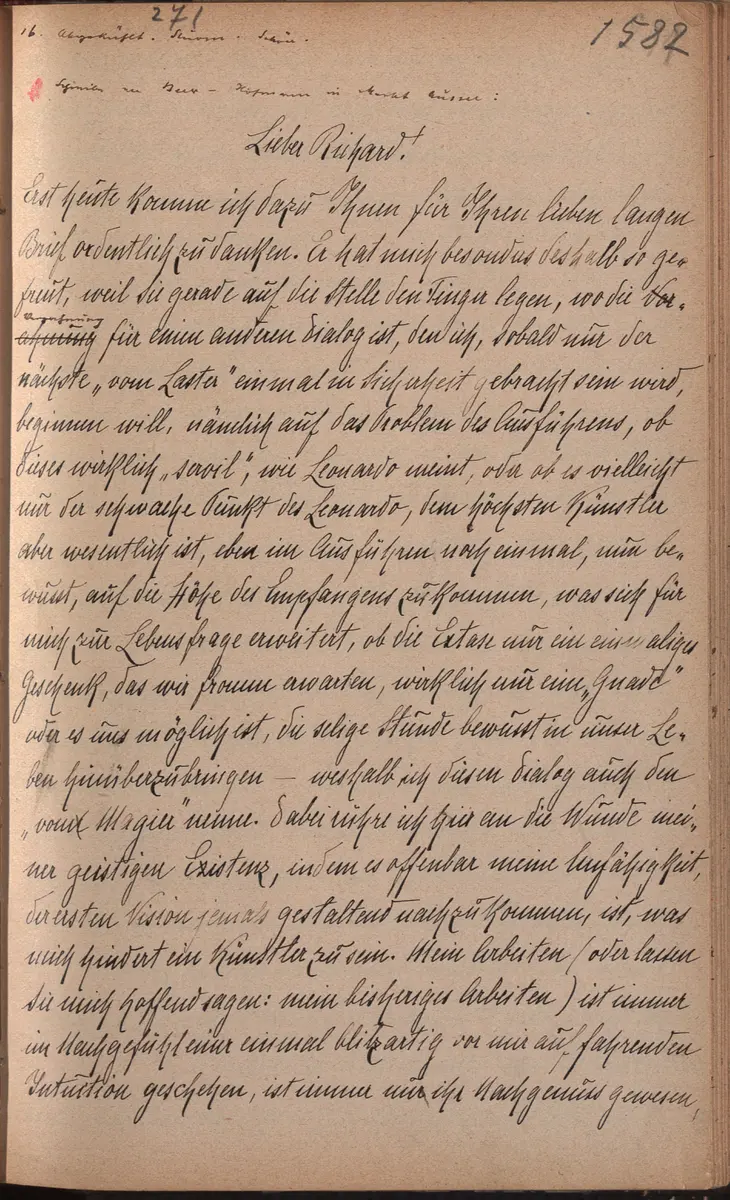 271
1582
16. Abgekühlt. Sturm. Schön.
Schreibe an Beer-Hofmann in Markt Aussee:
Lieber Richard!
Erst heute komme ich dazu Ihnen für Ihren lieben langen
Brief ordentlich zu danken. Er hat mich besonders deshalb so ge-
freut, weil Sie gerade auf die Stelle den Finger legen, wo die Vor-
ahnung für einen anderen Dialog ist, den ich, sobald nur der
nächste „vom Laster" einmal in Sicherheit gebracht sein wird,
beginnen will, nämlich auf das Problem des Ausführens, ob
dieses wirklich „servil", wie Leonardo meint, oder ob es vielleicht
nur der schwache Punkt des Leonardo, dem höchsten Künstler
aber wesentlich ist, eben im Ausführen noch einmal, nun be-
wusst, auf die Höhe des Empfangens zu kommen, was sich für
mich zur Lebensfrage erweitert, ob die Extase nur ein einmaliges
Geschenk, das wir fromm erwarten, wirklich nur eine „Gnade"
oder es uns möglich ist, die selige Stunde bewusst in unser Le-
ben hinüberzubringen — weshalb ich diesen Dialog auch den
„vom Magier" nenne. Dabei rühre ich hier an die Wunde mei-
ner geistigen Existenz, indem es offenbar meine Unfähigkeit,
der ersten Vision jemals gestaltend nachzukommen, ist, was
mich hindert ein Künstler zu sein. Mein Arbeiten (oder lassen
Sie mich hoffend sagen: mein bisheriges Arbeiten) ist immer
im Nachgefühl einer einmal blitzartig vor mir auffahrenden
Intuition geschehen, ist immer nur ihr Nachgenuss gewesen,